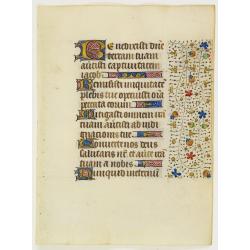 Benedixisti dn̄e
terram tuam
avertisti captivitatem
iacob.
Remisisti iniquitatē
plebis tue operuisti om̄a
peccata eorum
Mitigasti omnem irā
tuam avertisti ab indi
gnacionis tue
Converte nos deus
salutaris nr̄ et averte irā
tuam a nobis
Nunquid in eternū